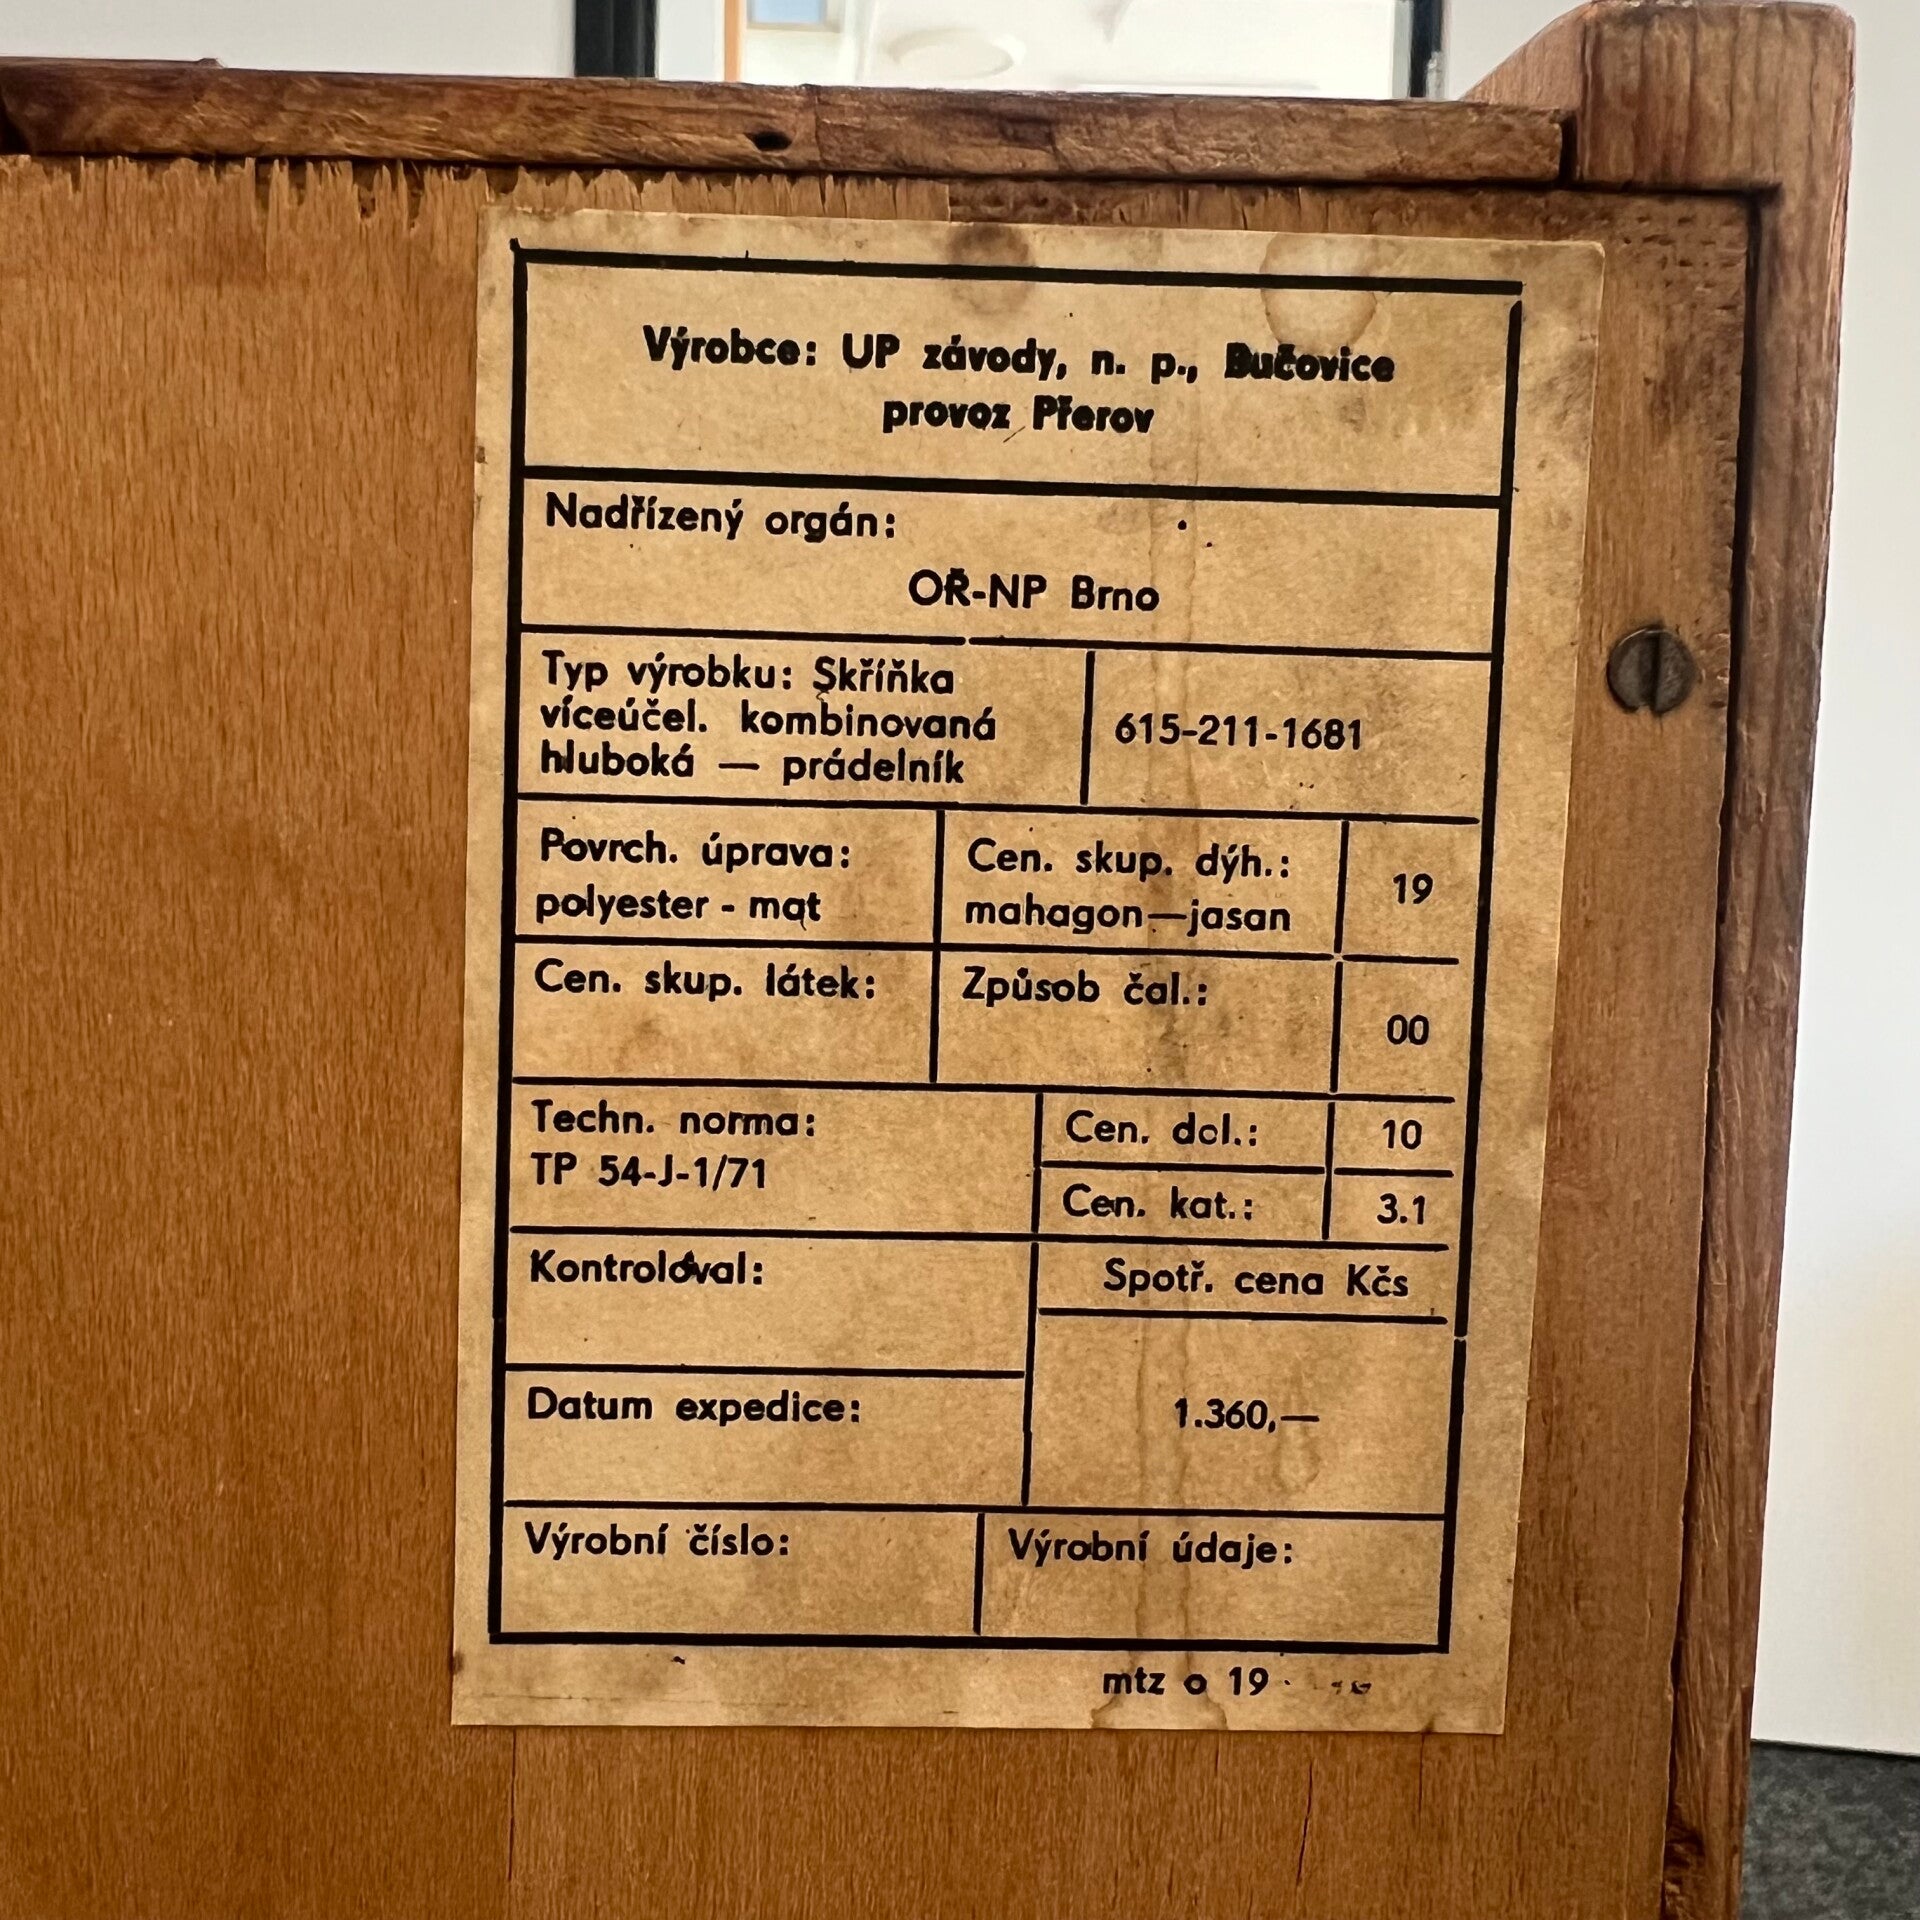 Výrobce: UP závody, n. p., Bučovice
provoz Přerov
Nadřízený orgán:
OŘ-NP Brno
Typ výrobku: Skříňka
víceúčel. kombinovaná
hluboká — prádelník
615-211-1681
Povrch. úprava:
polyester - mat
Cen. skup. dýh.:
mahagon—jasan
19
Cen. skup. látek:
Způsob čal.:
00
Techn. norma:
TP 54-J-1/71
Cen. dcl.:
10
Cen. kat.:
3.1
Kontroloval:
Spotř. cena Kčs
Datum expedice:
1.360,—
Výrobní číslo:
Výrobní údaje:
mtz o 19